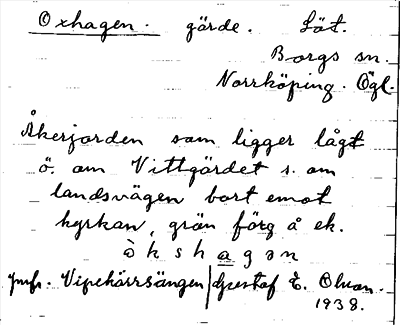 Oxhagen. gärde. Löt.
Borgs sn.
Norrköping. Ögl.
Åkerjorden som ligger lågt
ö. om Vittgärdet s. om
landsvägen bort emot
kyrkan, grön färg å ek.
ò k s h a g ə n
jmfr. Vipekärrsängen / Gustaf E. Olson.
1938.